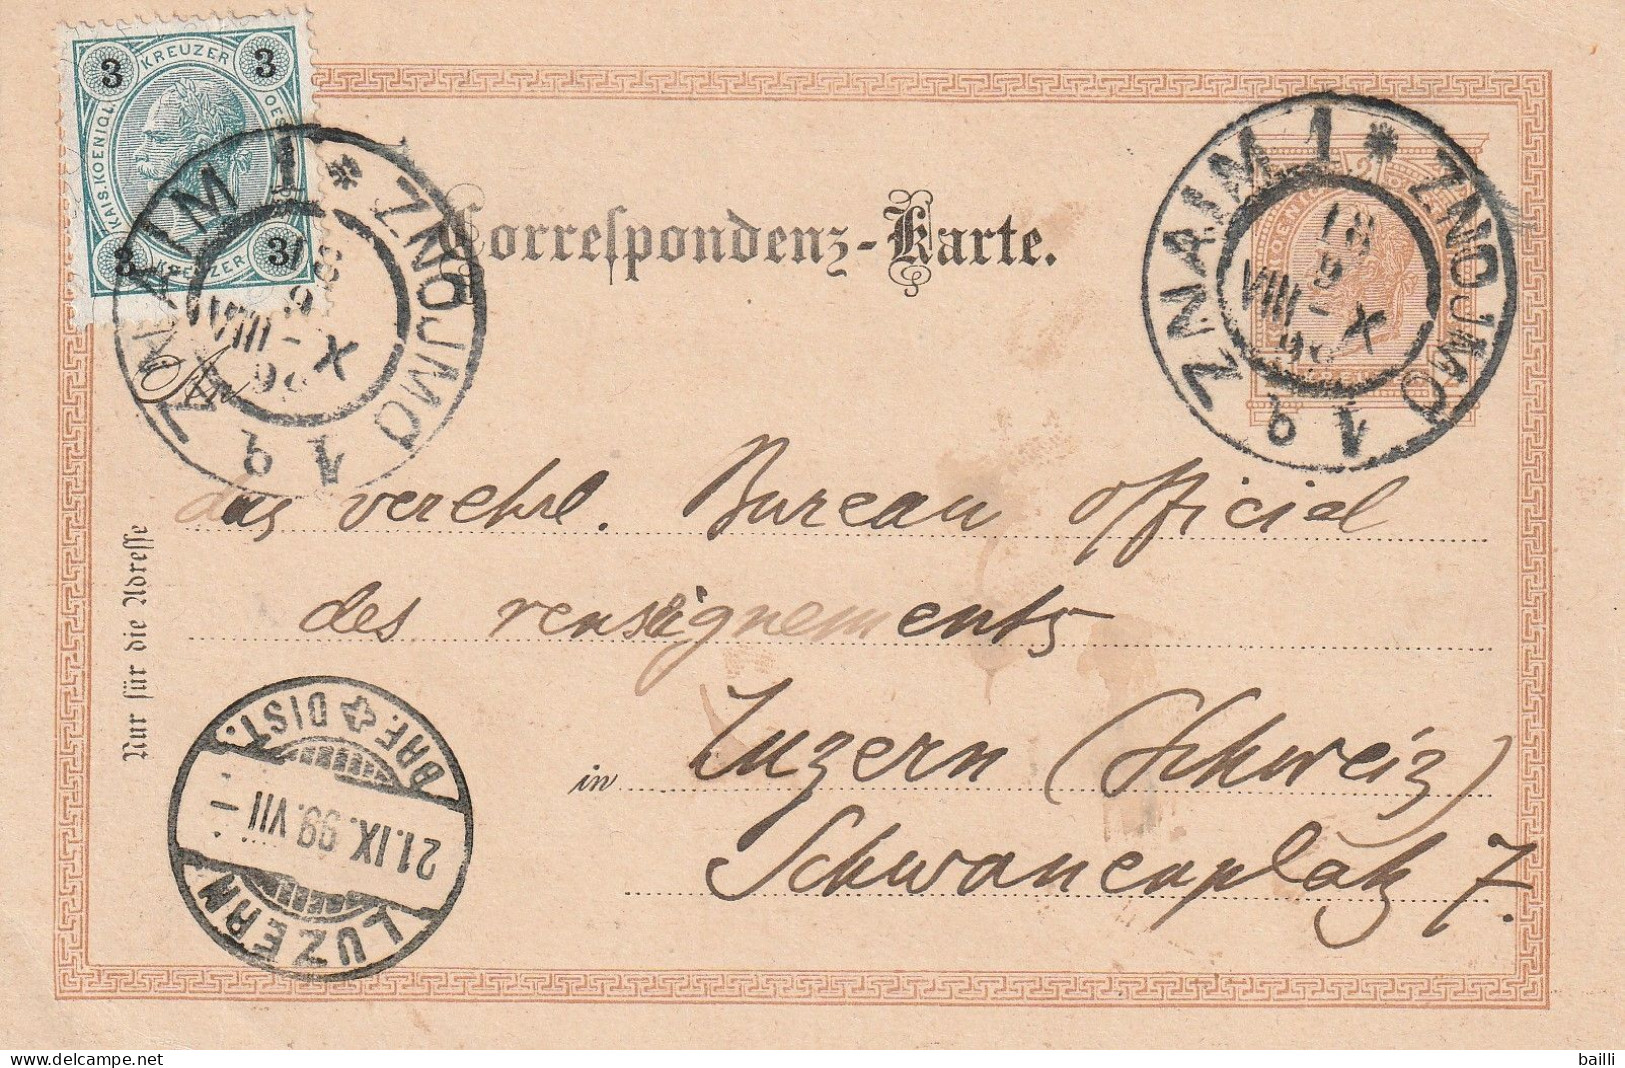 3 KREUZER 3
KAIS. KOENIGL.
3 KREUZER 3
ZNAIM 1 * ZNOJMO 1
ZNAIM 1 * ZNOJMO 1
18
9
VIII - X
Correspondenz-Karte.
An
das verehrl. Bureau officiel
des renseignements
in Luzern (Schweiz)
Schwanenplatz 7.
Nur für die Adresse
BRF. DIST.
21.IX.99.VII
LUZERN
delcampe.net
bailli